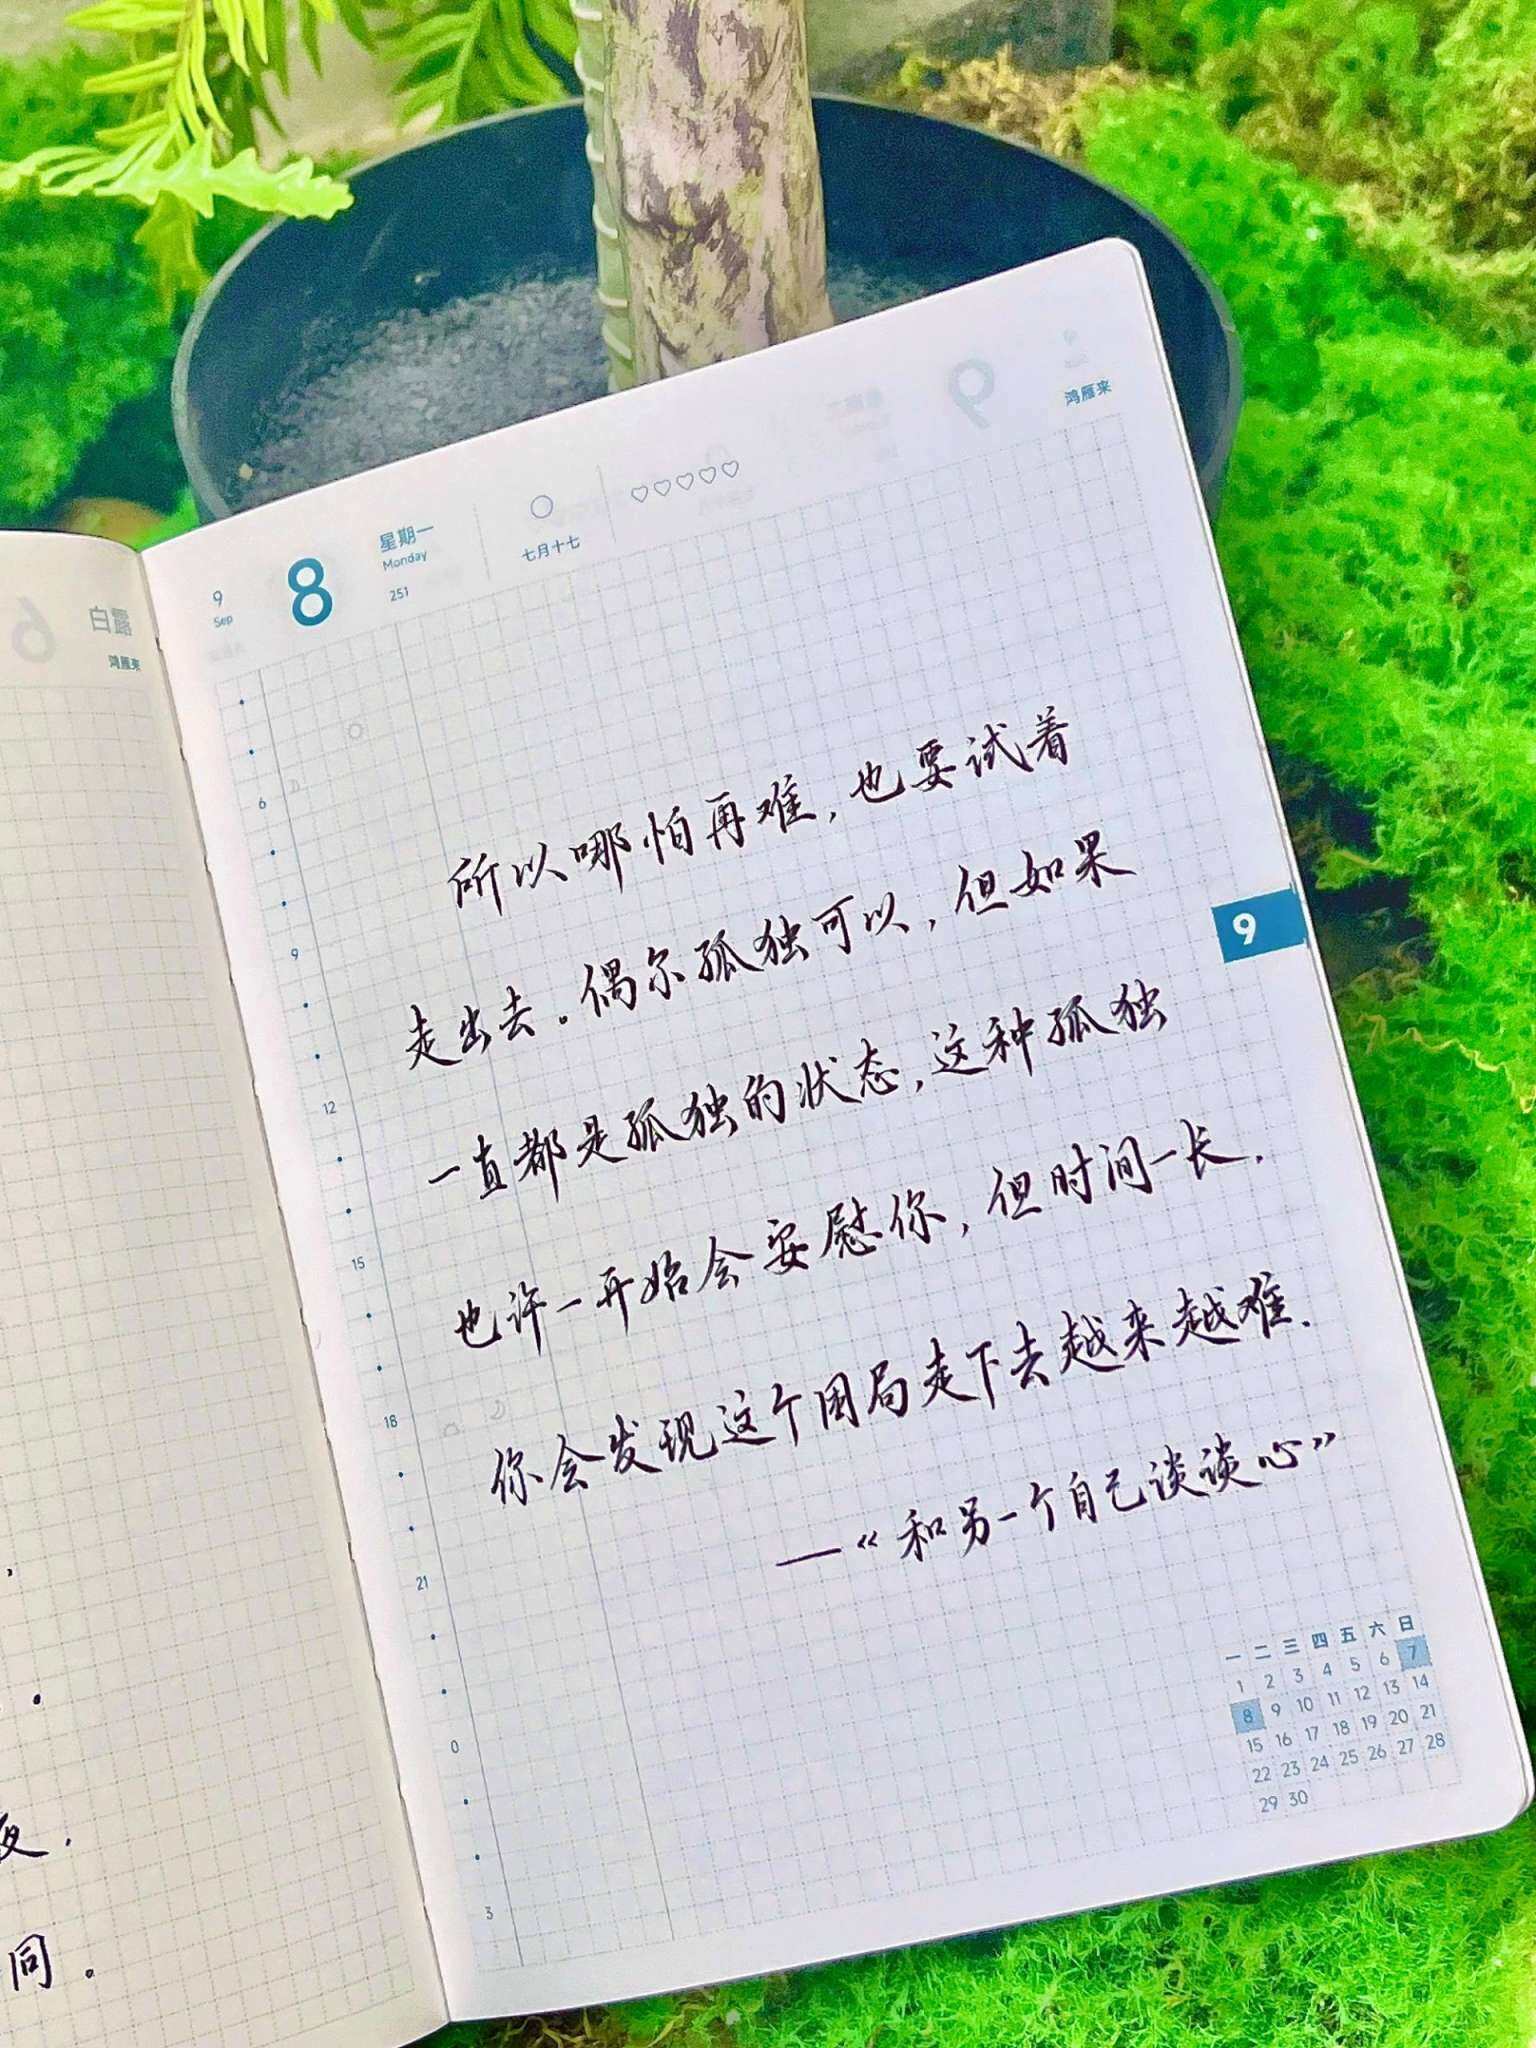 白露
鸿雁来
夜.
同。
9
Sep
8
星期一
Monday
251
七月十七
鸿雁来
6
9
12
15
18
21
0
3
所以哪怕再难,也要试着
走出去。偶尔孤独可以,但如果
一直都是孤独的状态,这种孤独
也许一开始会安慰你,但时间一长.
你会发现这个困局走下去越来越难.
—《和另一个自己谈谈心》
9
一 二 三 四 五 六 日
1 2 3 4 5 6 7
8 9 10 11 12 13 14
15 16 17 18 19 20 21
22 23 24 25 26 27 28
29 30